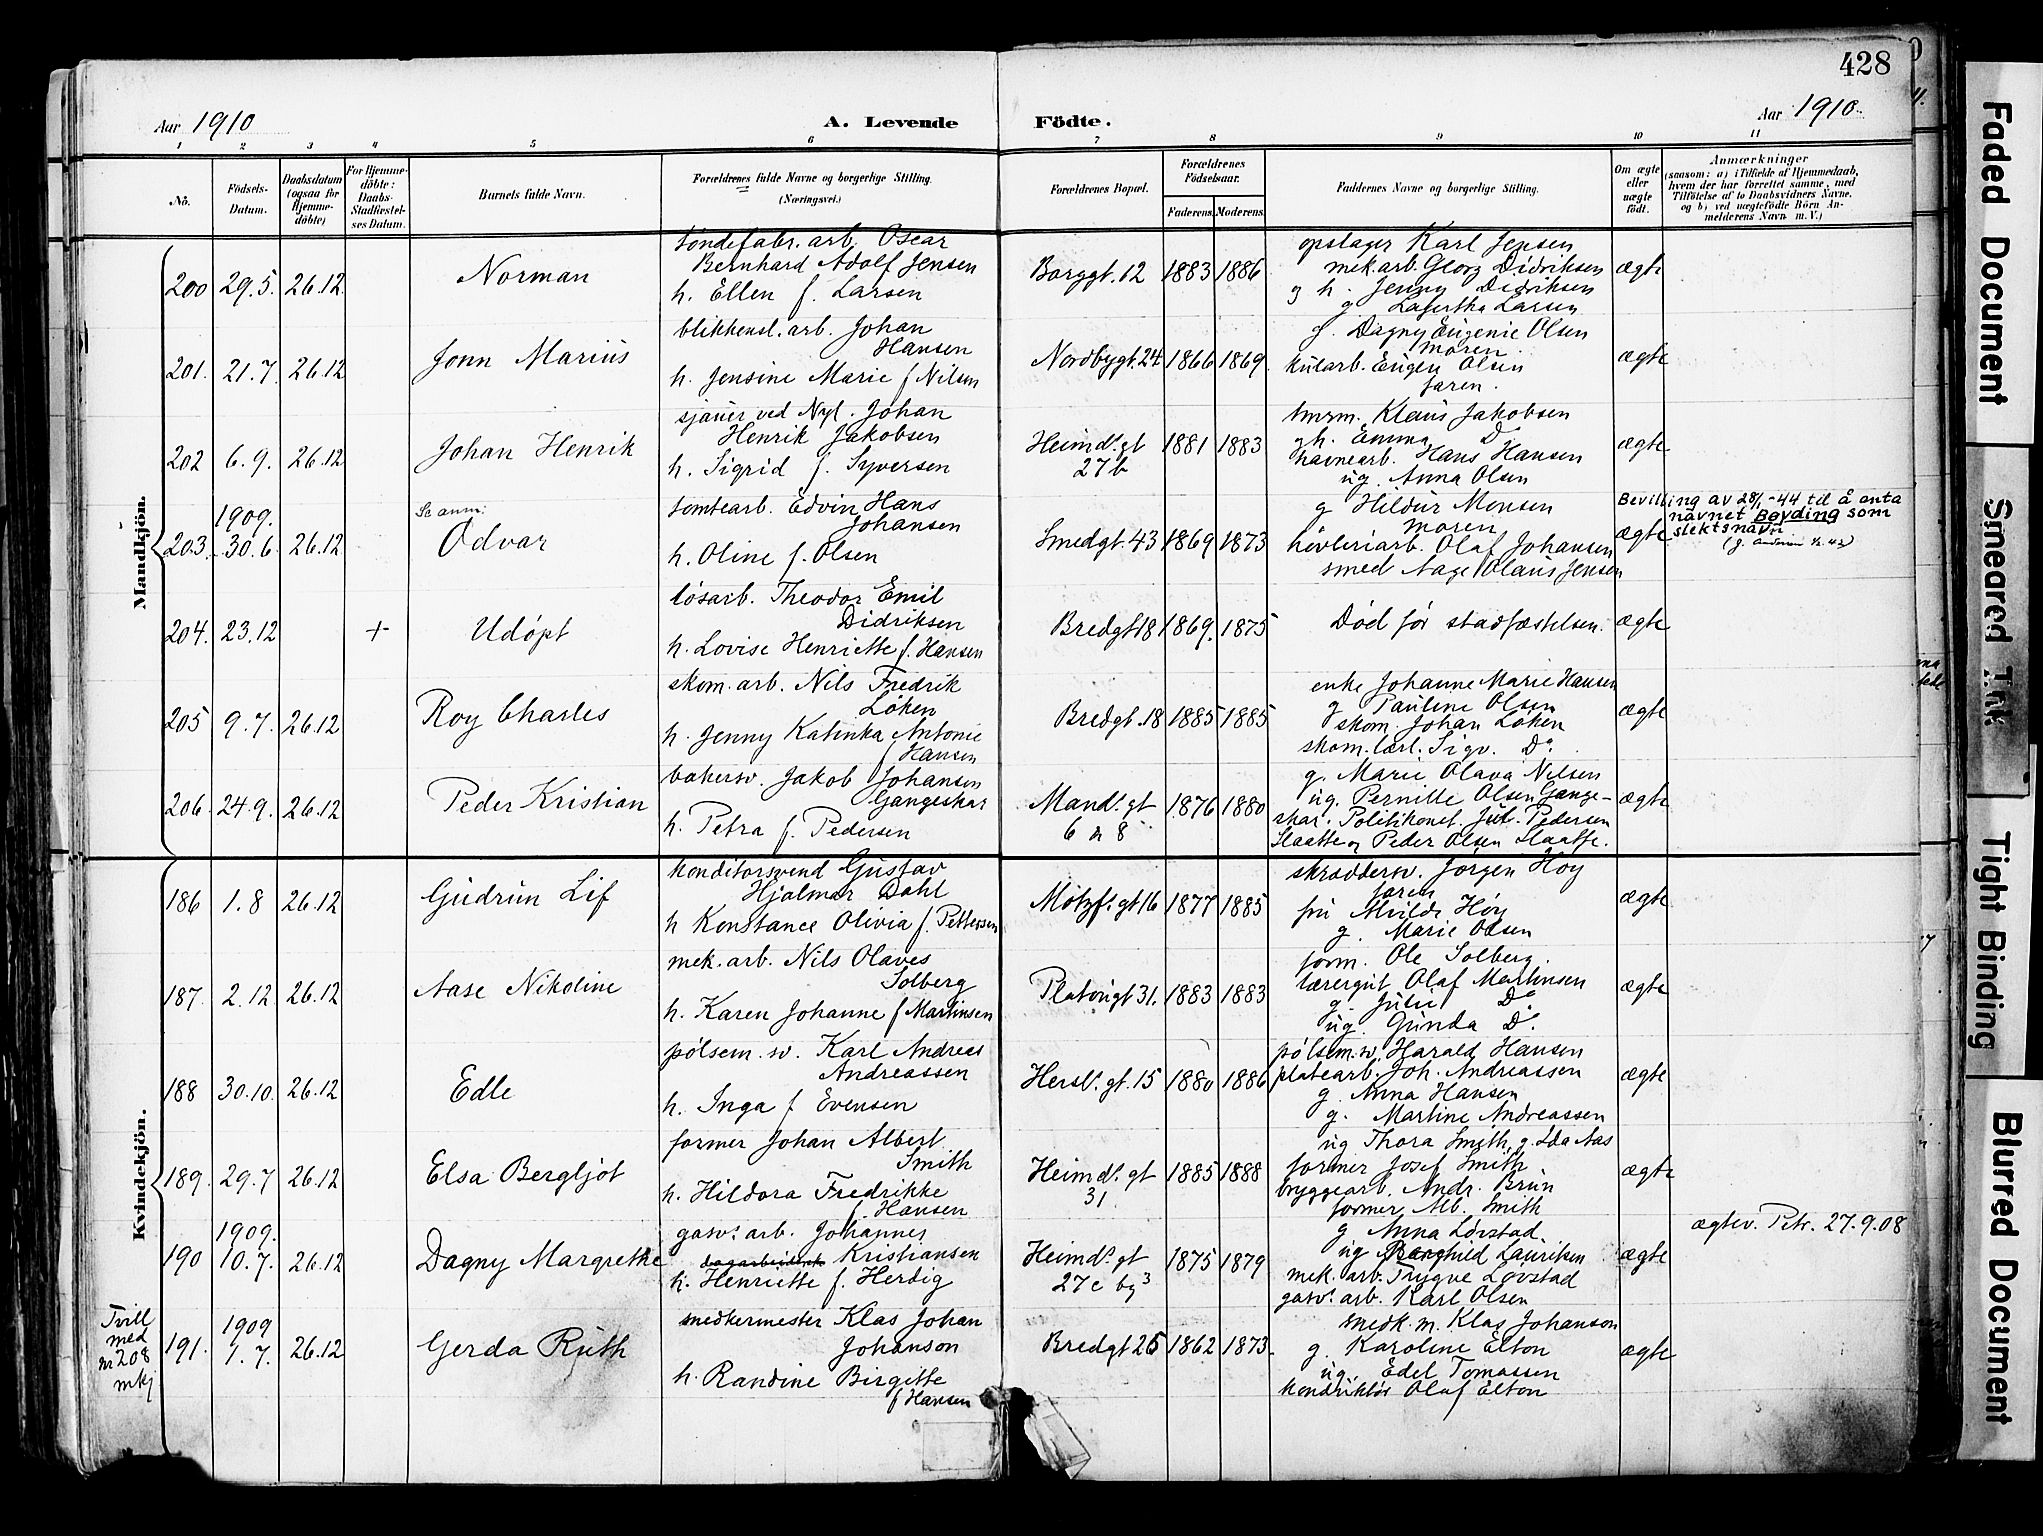 428
Aar 1910 A. Levende Födte. Aar 1910
1 2 3 4 5 6 7 8 9 10 11
No.
Födsels-
Datum.
Daabsdatum
(ogsaa for
Hjemme-
döbte)
For Hjemme-
döbte:
Daabs-
Stadfæstel-
ses Datum.
Barnets fulde Navn.
Forældrenes fulde Navne og borgerlige Stilling.
(Næringsvei.)
Forældrenes Bopæl.
Forældrenes
Födselsaar.
Faderens. Moderens.
Faddernes Navne og borgerlige Stilling.
Om ægte
eller
uægte
födt.
Anmærkninger
(saasom: a) i Tilfælde af Hjemmedaab,
hvem der har forrettet samme, med
Tilföielse af to Daabsvidners Navne.
og b) ved uægtefödte Börn An-
melderens Navn m. V.)
Mandkjön.
200 29.5. 26.12 Norman
töndefabr. arb. Oscar
Bernhard Adolf Jensen
h. Ellen f. Larsen
Borggt. 12 1883 1886
opslager Karl Jensen
mek. arb. Georg Didriksen
g h. Jenny Didriksen
g Lagertha Larsen
ægte
201. 21.7. 26.12 Jonn Marius
blikkensl. arb. Johan
Hansen
h. Jensine Marie f Nilsen
Nordbygt. 24 1866 1869
g. Dagny Eugenie Olsen
moren
kularb. Eugen Olsen
faren.
ægte
202 6.9. 26.12 Johan Henrik
sjauer ved Nyl. Johan
Henrik Jakobsen
h. Sigrid f. Syversen
Heimdl. gt
27b
1881 1883
tmrm. Klaus Jakobsen
gh. Emma Do
havnearb. Hans Hansen
ug. Anna Olsen
ægte
203. 1909.
30.6. 26.12
Se anm:
Odvar
tomtearb. Edvin Hans
Johansen
h. Oline f. Olsen
Smedgt. 43 1869 1873
g Hildur Monsen
moren
hövleriarb. Olaf Johansen
smed Aage Olaus Jensen
ægte
Bevilling av 28/1-44 til å anta
navnet Bøyding som
slektsnavn
204. 23.12 + Udöpt
lösarb. Theodor Emil
Didriksen
h. Lovise Henriette f. Hansen
Bredgt 18 1869. 1875
Död för stadfæstelsen.
ægte
205 9.7. 26.12 Roy Charles
skom. arb. Nils Fredrik
Löken
h. Jenny Katinka Antonie
f Hansen
Bredgt. 18 1885 1885
enke Johanne Marie Hansen
g Pauline Olsen
skom. Johan Löken
skom. lærl. Sigv. Do.
ægte
206. 24.9. 26.12 Peder Kristian
bakersv. Jakob Johansen
Gangeskar
h. Petra f. Pedersen
Mandl. gt
6 n 8
1876 1880
g. Marie Olava Nilsen
ug. Pernille Olsen Gange-
skar. Politikonst. Jul. Pedersen
Slaatte og Peder Olsen Slaatte.
ægte
Kvindekjön.
186 1.8 26.12 Gudrun Lif
konditorsvend Gustav
Hjalmar Dahl
h Konstance Olivia f. Pettersen
Motzf. gt 16 1877 1885
skræddersv. Jörgen Höy
faren
fru Milde Höy
g. Marie Olsen
ægte
187. 2.12 26.12 Aase Nikoline
mek. arb. Nils Olaves
Solberg
h. Karen Johanne f Martinsen
Platougt 31. 1883 1883
form. Ole Solberg.
lærergut Olaf Martinsen
g Julie Do
ug. Gunda Do.
ægte
188 30.10. 26.12 Edle
pölsem. sv. Karl Andreas
Andreassen
h. Inga f Evensen
Hersl. gt. 15 1880 1886
pölsem. sv. Harald Hansen
platearb. Joh. Andreassen
g Anna Hansen
g. Martine Andreassen
ægte
189. 29.7 26.12 Elsa Bergljot
former Johan Albert
Smith
h. Hildora Fredrikke
f. Hansen
Heimdl. gt
31
1885 1888
ug Thora Smith, g. Ida Aas
former Josef Smith
bryggearb. Andr. Brun
former Alb. Smith
ægte
190 1909.
10.7. 26.12 Dagny Margrethe
gasv. arb. Johannes
Kristiansen
h. Henriette f. Herdig
Heimdl. gt
27c bg 3
1875 1879
g Anna Lövstad
ug Ranghild Lauritsen
mek. arb. Trygve Lövstad
gasv. arb. Karl Olsen
ægte
ægtev. Petr. 27.9.08
Tvill
med
nr 208
mkj
191. 1909
1.7. 26.12 Gerda Ruth
snedkermester Klas Johan
Johanson
h. Randine Birgitte
f Hansen
Bredgt 25 1862 1873.
snedk. m. Klas Johanson
g. Karoline Elton
ug. Edel Tomassen
konduktör Olaf Elton
ægte
Faded Document
Smeared Ink
Tight Binding
Blurred Document